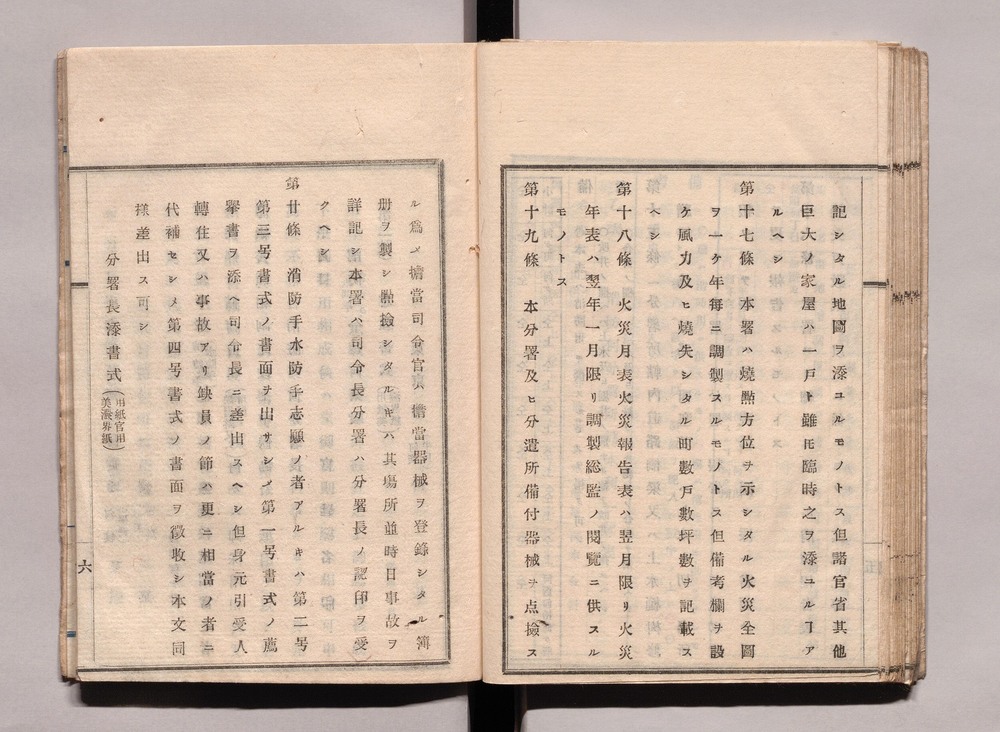 記シタル地圖ヲ添ユルモノトス但諸官省其他
巨大ノ家屋ハ一戸ト雖𪜈臨時之ヲ添ユルヿア
ルヘシ
第十七條　本署ハ燒㸃方位ヲ示シタル火災全圖
ヲ一ケ年每ニ調製スルモノトス但備考欄ヲ設
ケ風力及ヒ燒失シタル町數戸數坪數ヲ記載ス
ヘシ
第十八條　火災月表火災報告表ハ翌月限リ火災
年表ハ翌年一月限リ調製総監ノ閱覽ニ供スル
モノトス
第十九條　本分署及ヒ分遣所備付器械ヲ点撿ス
ル爲メ擔當司令官、擔當器械ヲ登錄シタル簿
册ヲ製シ㸃撿シタルキハ其塲所並時日事故ヲ
詳記シ本署ハ司令長分署ハ分署長ノ認印ヲ受
クヘシ
第廿條　消防手水防手志願ノ者アルキハ第二号
第三号書式ノ書面ヲ出サシメ第一号書式ノ薦
擧書ヲ添ヘ司令長ニ差出スヘシ但身元引受人
轉住又ハ事故アリ缺員ノ節ハ更ニ相當ノ者ニ
代補セシメ第四号書式ノ書面ヲ徵收シ本文同
樣差出ス可シ
分署長添書式（用紙官用美濃界紙）
六